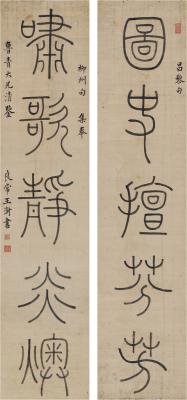 圖史擅芬芳
昌黎句
嘯歌靜炎燠
柳州句
集奉
曹青大兄清鑒
良常王澍書